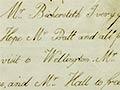 Mr Beckwith Ivory
Hope Mr Pratt and all
visit to Wellington Mr
and Mr Hall to